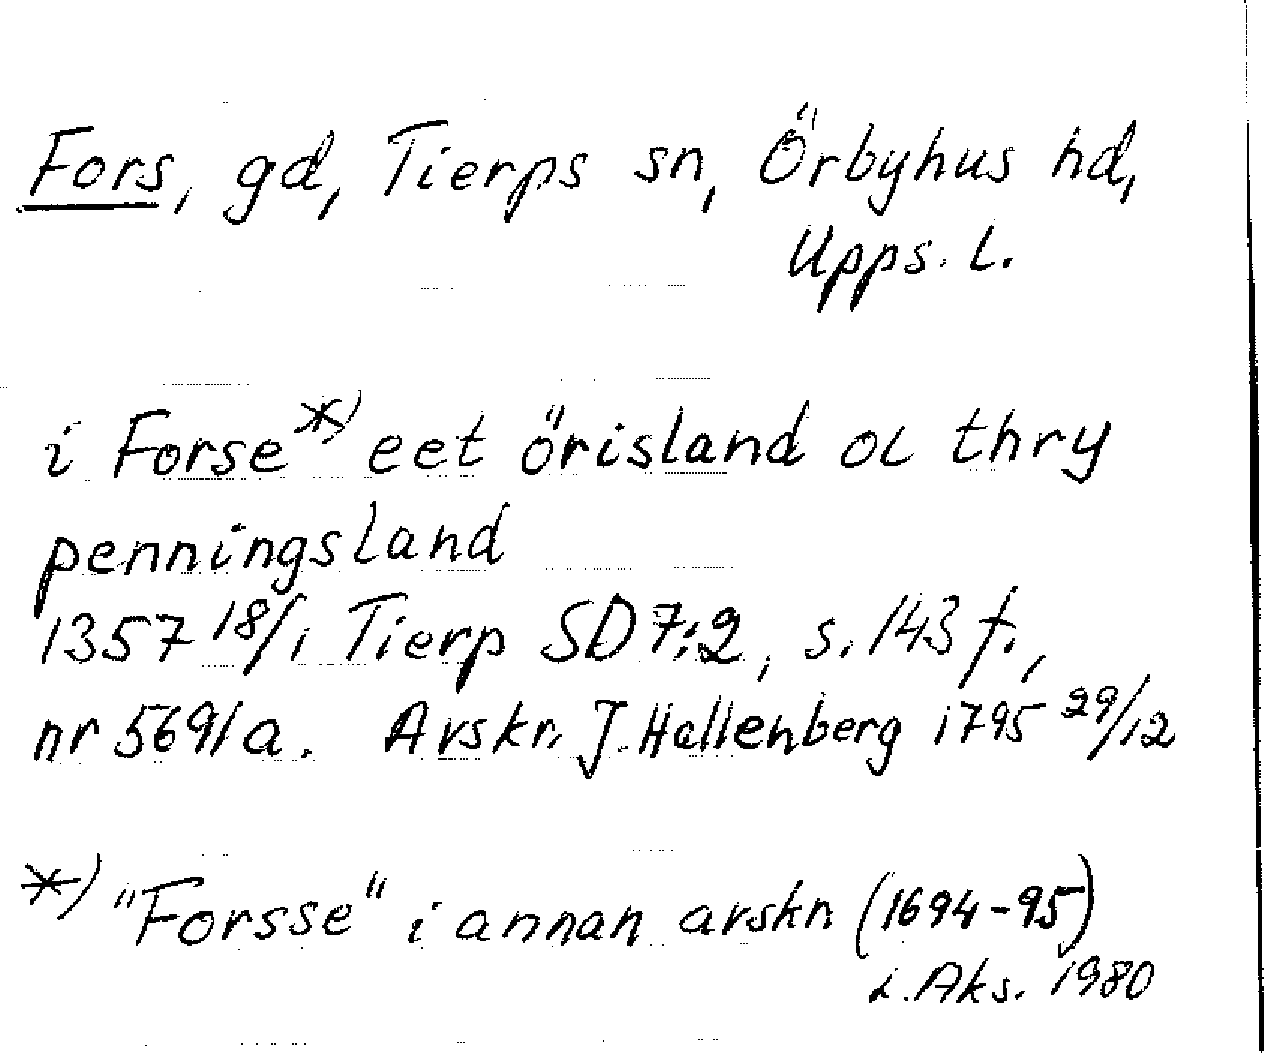 Fors, gd, Tierps sn, Örbyhus hd,
Upps. l.
i Forse*) eet örisland oc thry
penningsland
1357 18/1 Tierp SD 7:2, s. 143 f.,
nr 5691a. Avskr. J. Hallenberg 1795 29/12
*) "Forsse" i annan avskr (1694-95)
L. Aks. 1980